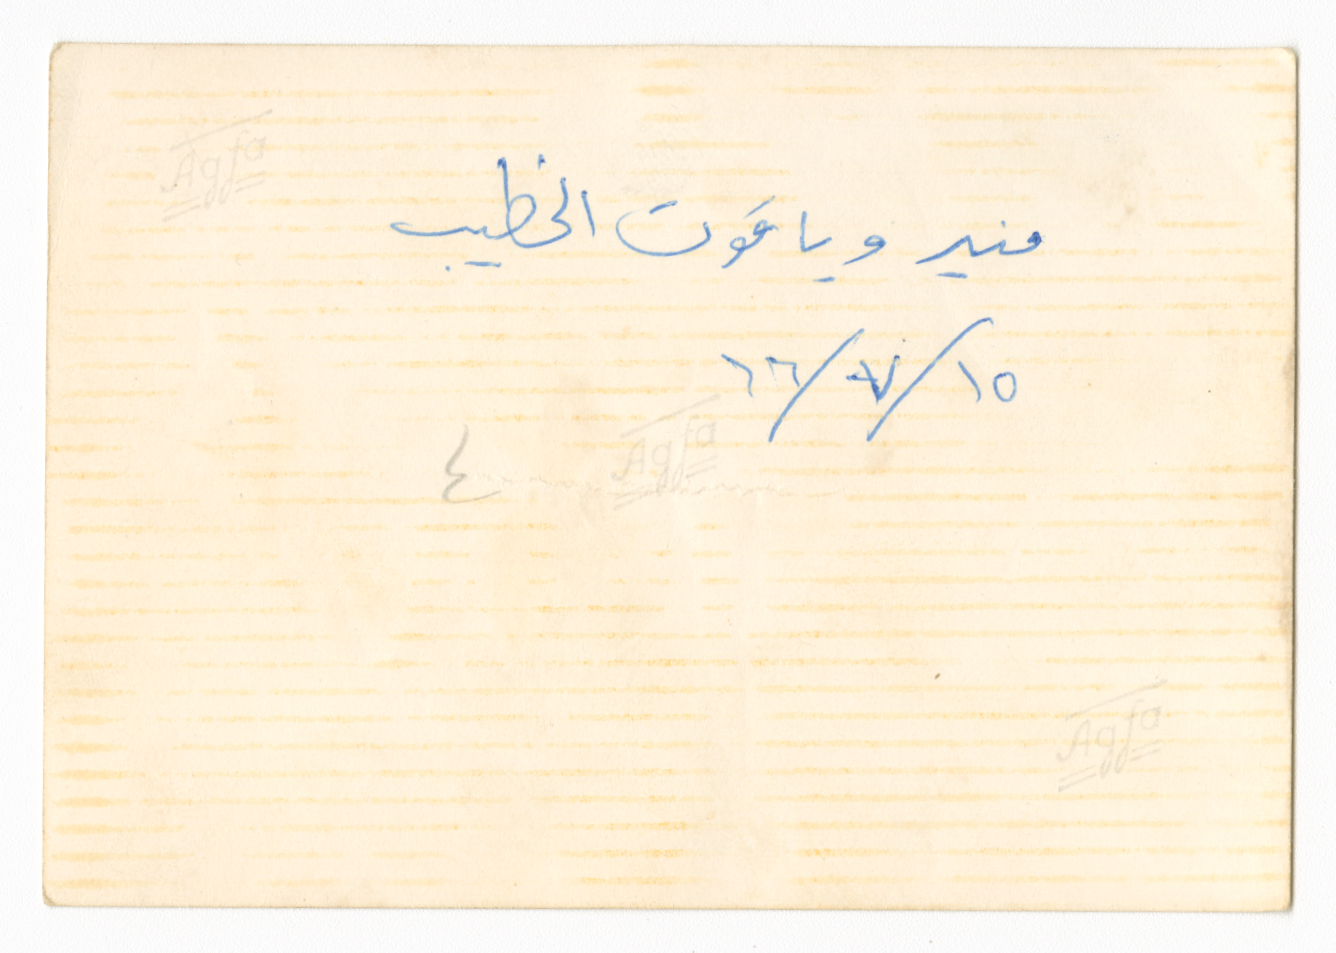 منير وياقوت الخطيب
١٥/٧/٦٦
٤
Agfa
Agfa
Agfa